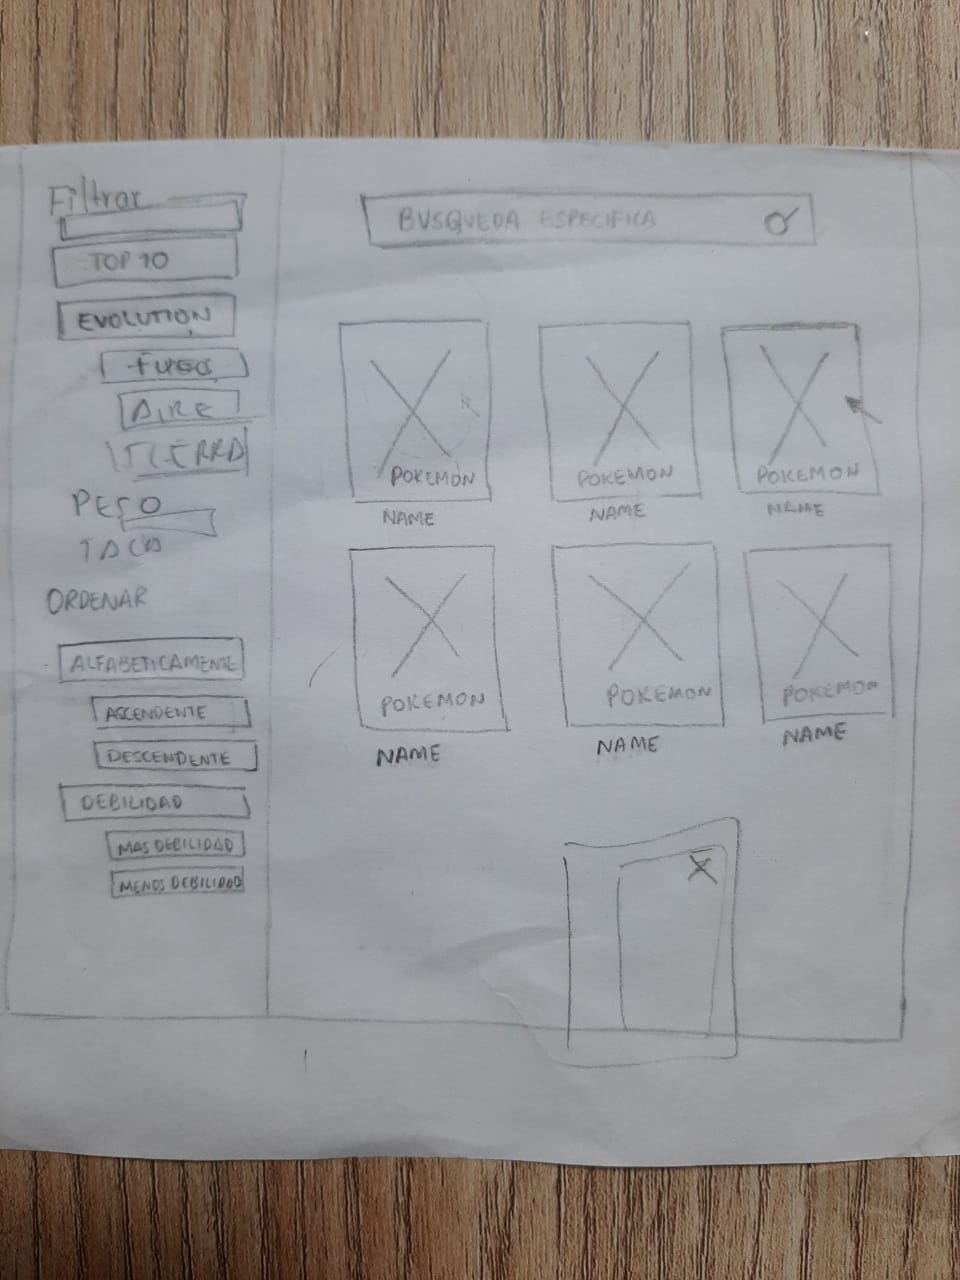 Filtrar
TOP 10
EVOLUTION
FUEGO
AIRE
TIERRA
PESO
ORDENAR
ALFABETICAMENTE
ASCENDENTE
DESCENDENTE
DEBILIDAD
MAS DEBILIDAD
MENOS DEBILIDAD
BUSQUEDA ESPECIFICA
POKEMON POKEMON POKEMON
NAME NAME NAME
POKEMON POKEMON POKEMON
NAME NAME NAME